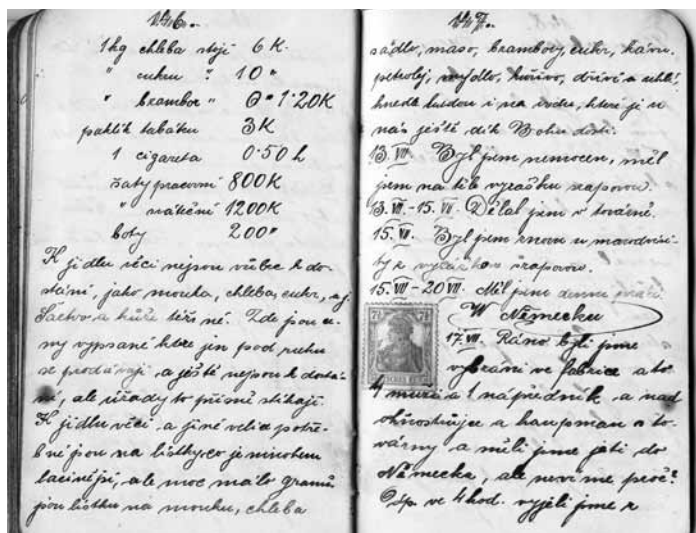 1kg chleba stojí 6 K.
" cukru " 10 "
" brambor " 1·20K
paklík tabáku 3K
1 cigareta 0·50 h
žaty pracovní 800K
" 1200K
boty 200 "
K jídlu věci nejsou vůbec k do-
stání, jako mouka, chleba, cukr, a j.
Šactvo a kůže též né. Zde jsou ce-
ny vypsané které jen pod ruku
se prodávají a ještě nejsou k dostá-
ní, ale úřady to přísně stíhají.
K jídlu věci a jiné velice potře-
bné jsou na lístky, co je mnohem
lacinější, ale moc málo gramů
jsou lístku na mouku, chleba
sádlo, maso, brambory, cukr, kávu,
petrolej, mýdlo, kuřivo, dříví a uhlí,
i na vodu, které je u
nás ještě dík Bohu dosti.
13. VII. Byl jsem nemocen, měl
jsem na
13. VII - 15. VII. Dělal jsem v továrně.
15. VII. Byl jsem znovu u
15. VII - 20 VII. Měl jsem denní
W Německu
7½ 7½
17. VII. Ráno byli jsme
vybráni ve fabrice a to
4 muži a 1 nápředník a nad
a haupman s to-
várny a měli jsme jeti do
Německa, ale neví me proč?
Odp. ve 4 hod. vyjeli jsme z